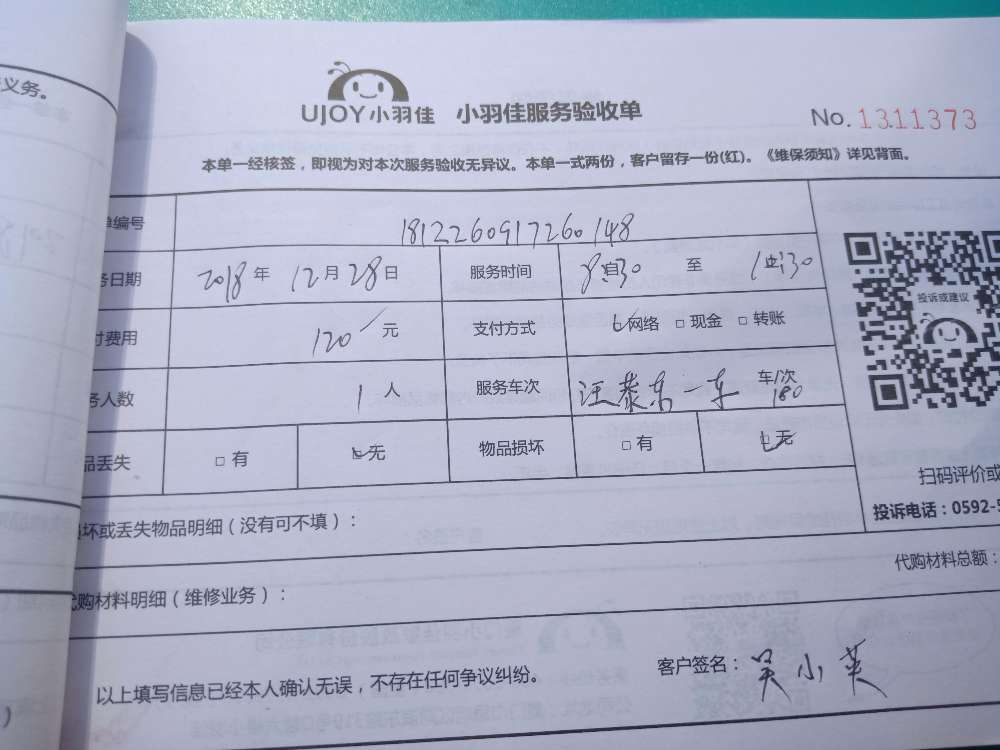 义务。
UJOY小羽佳 小羽佳服务验收单
No. 1311373
本单一经核签，即视为对本次服务验收无异议。本单一式两份，客户留存一份(红)。《维保须知》详见背面。
单编号 1812260917260148
务日期 2018年 12月28日 服务时间 8:30 至 1:30
投诉或建议
付费用 120 元 支付方式 网络 □ 现金 □ 转账
务人数 1 人 服务车次 汪泰东 车 车/次
180
品丢失 □ 有 无 物品损坏 □ 有 无
扫码评价或
损坏或丢失物品明细（没有可不填）： 投诉电话：0592-5
代购材料明细（维修业务）： 代购材料总额：
以上填写信息已经本人确认无误，不存在任何争议纠纷。 客户签名：吴小英